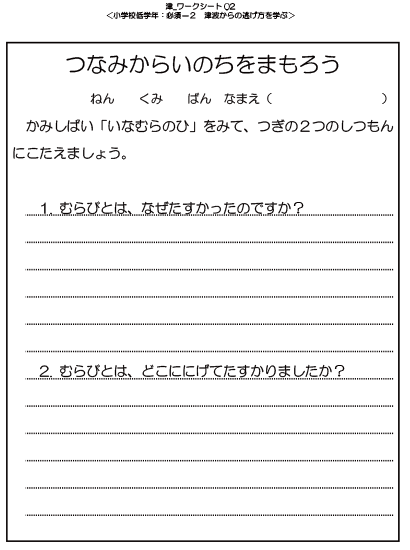 津_ワークシート02
<小学校低学年：必須－2　津波からの逃げ方を学ぶ>
つなみからいのちをまもろう
ねん　　くみ　　ばん　なまえ（　　　　　　　　）
かみしばい「いなむらのひ」をみて、つぎの２つのしつもん
にこたえましょう。
1. むらびとは、なぜたすかったのですか？
2. むらびとは、どこににげてたすかりましたか？